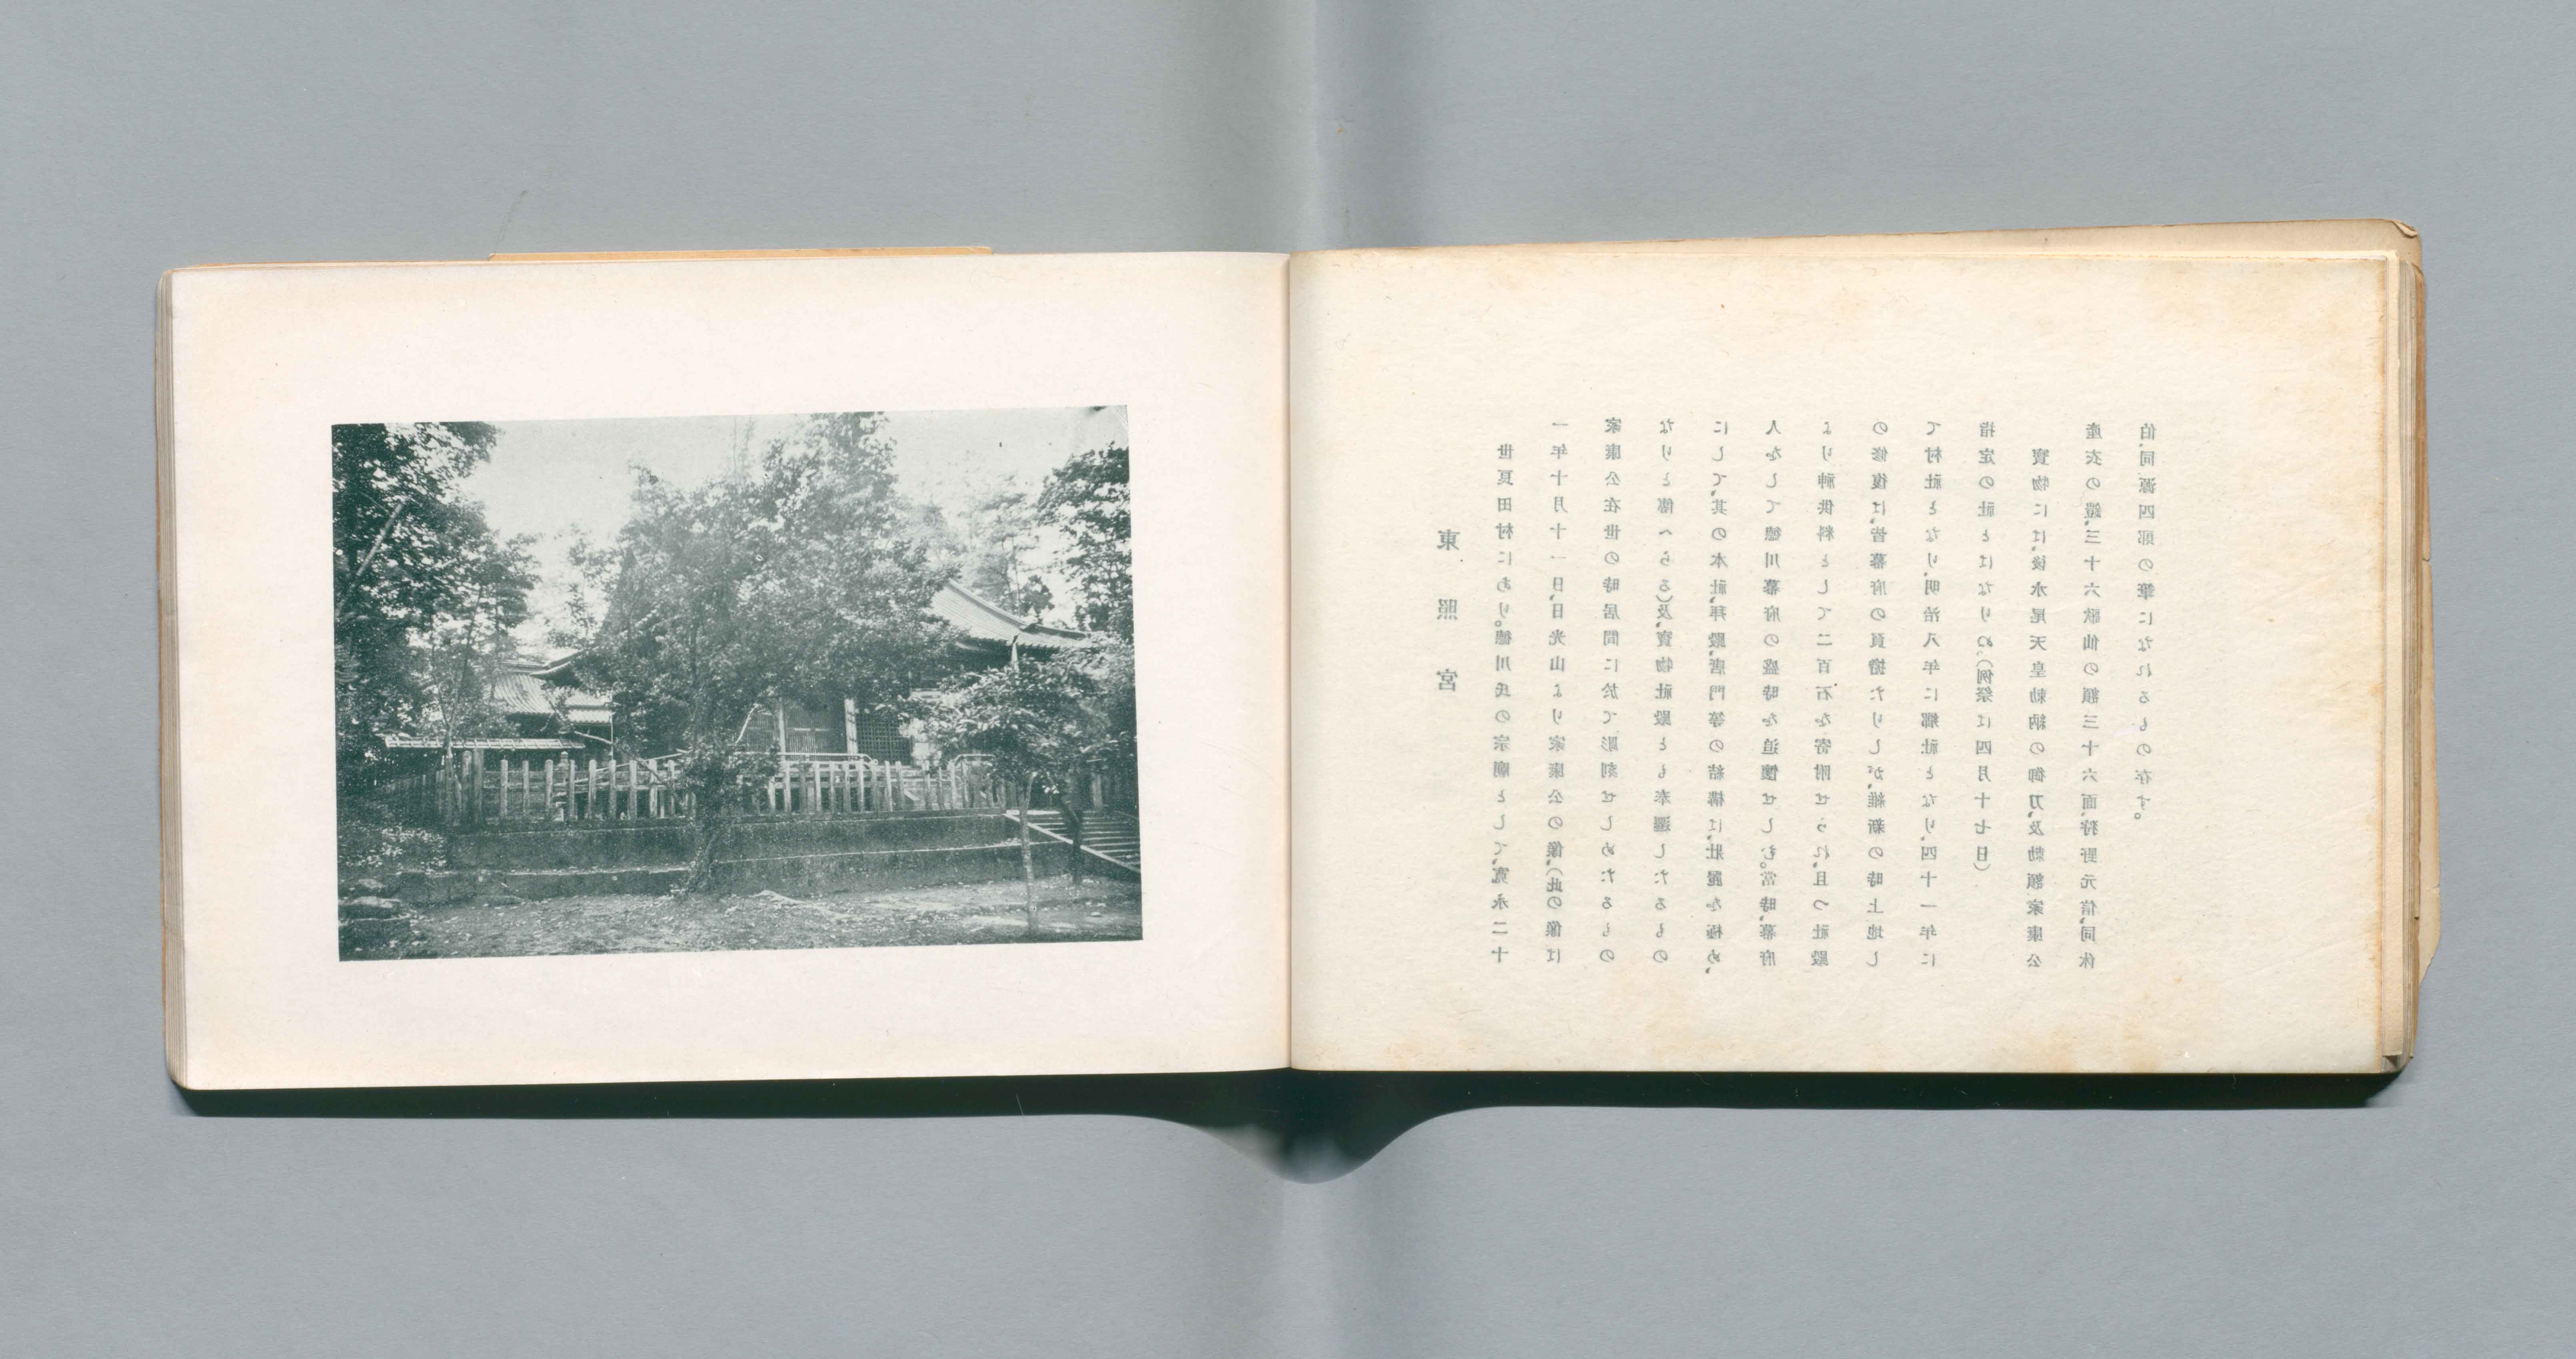 東照宮
世良田村にあり。徳川氏の宗廟として、寛永二十
一年十月十一日、日光山より家康公の像、(此の像は
家康公在世の時居間に於て彫刻せしめたるもの
なりと傳へらる)及、寶物社殿とも奉遷したるもの
にして、其の本社、拜殿、唐門等の結構は、壯麗を極め、
人をして德川幕府の盛時を追懷せしむ。當時、幕府
より神供料として二百石を寄附せられ、且つ社殿
の修復は、皆幕府の負擔たりしが、維新の時上地し
て村社となり、明治八年に郷社となり、四十一年に
指定の社とはなりぬ。(例祭は四月十七日)
寶物には、後水尾天皇勅納の御刀、及勅額家康公
産衣の鎧、三十六歌仙の額三十六面、狩野元信、同休
伯、同源四郎の筆になれるもの存す。